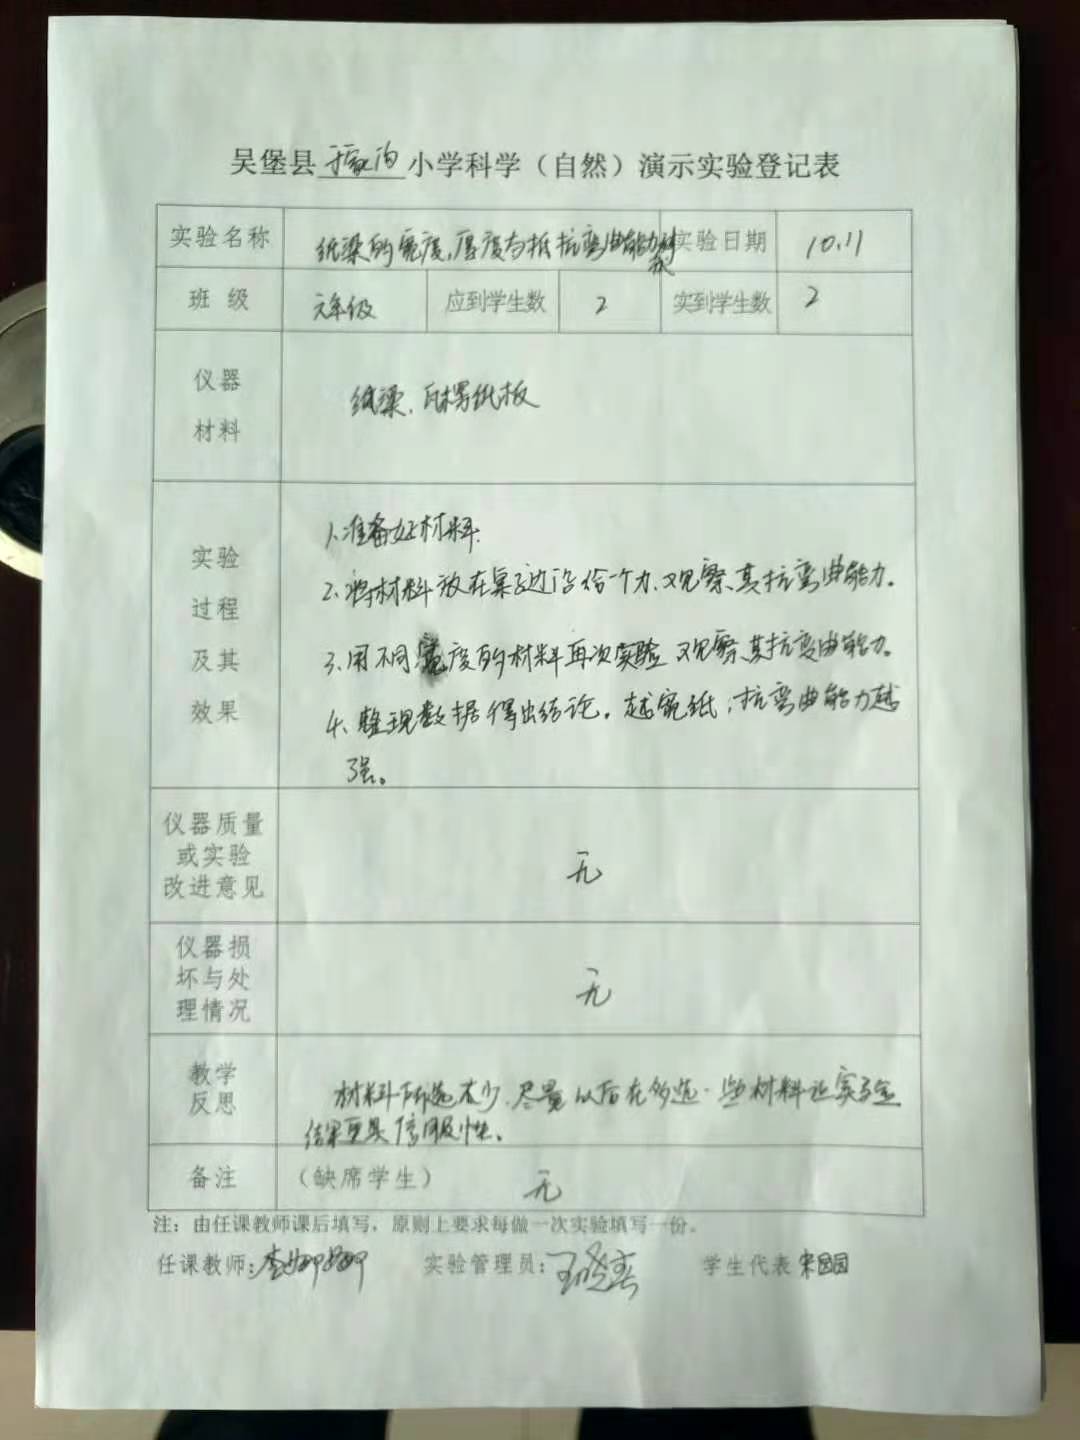 吴堡县于家沟小学科学（自然）演示实验登记表
实验名称 纸梁的宽度，厚度与抵抗弯曲能力 实验日期 10.11
班 级 六年级 应到学生数 2 实到学生数 2
仪器
材料
纸梁、瓦楞纸板
实验
过程
及其
效果
1、准备好材料.
2、将材料放在桌子边沿给一个力、观察其抗弯曲能力。
3、用不同宽度的材料再次实验 观察其抗弯曲能力。
4、整理数据得出结论。越宽纸，抗弯曲能力越
强。
仪器质量
或实验
改进意见
无
仪器损
坏与处
理情况
无
教学
反思
材料所选太少.尽量以后在多选一些材料让实验
结果更具信服性。
备注 （缺席学生） 无
注：由任课教师课后填写，原则上要求每做一次实验填写一份。
任课教师：李 实验管理员：王晓 学生代表 宋园园